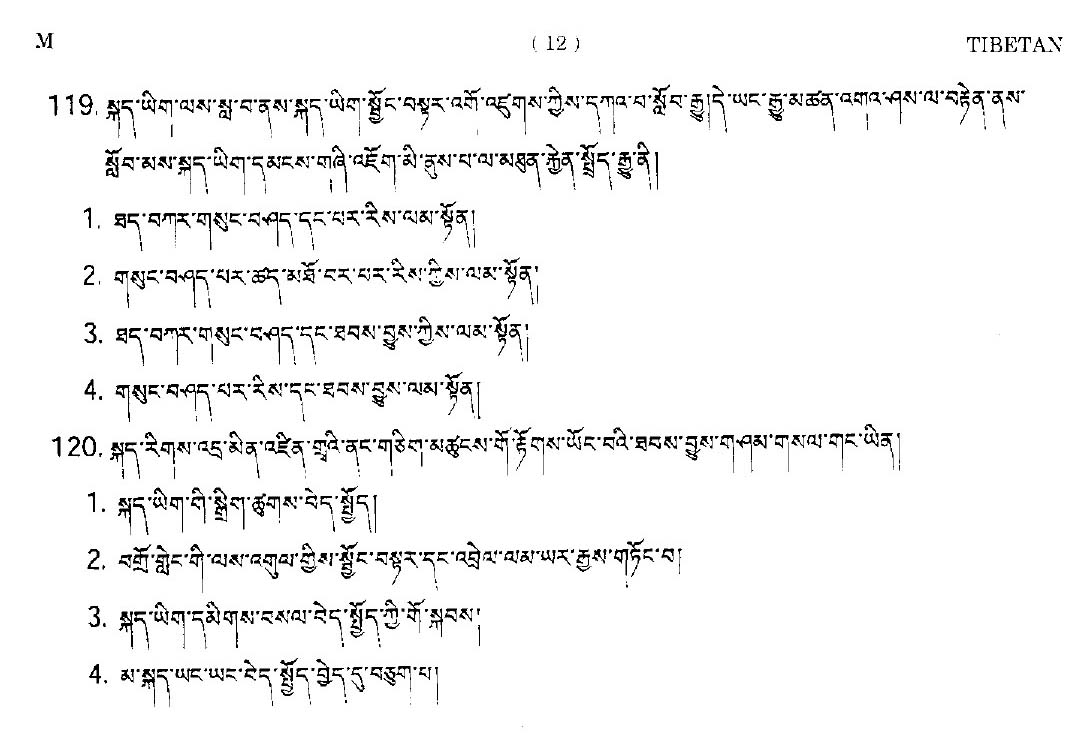 M
( 12 )
TIBETAN
119. སྐད་ཡིག་ལས་སླ་བ་ནས་སྐད་ཡིག་སྦྱོང་བསྟར་འགོ་འཛུགས་ཀྱིས་དཀའ་བ་སློབ་རྒྱུ།དེ་ཡང་རྒྱུ་མཚན་འགའ་ཤས་ལ་བརྟེན་ནས་
སློབ་མས་སྐད་ཡིག་དམངས་གཞི་འཇོག་མི་ནུས་པ་ལ་མཐུན་རྐྱེན་སྤྲོད་རྒྱུ་ནི།
1. ཐད་བཀར་གསུང་བཤད་དང་པར་རིས་ལམ་སྟོན།
2. གསུང་བཤད་པར་ཚད་མཐོ་བར་པར་རིས་ཀྱིས་ལམ་སྟོན་།
3. ཐད་བཀར་གསུང་བཤད་དང་ཐབས་བྱུས་ཀྱིས་ལམ་སྟོན་།
4. གསུང་བཤད་པར་རིས་དང་ཐབས་བྱུས་ལམ་སྟོན།
120. སྐད་རིགས་འདྲ་མིན་འཛིན་གྲྭའི་ནང་གཅིག་མཚུངས་གོ་རྟོགས་ཡོང་བའི་ཐབས་བྱུས་གཤམ་གསལ་གང་ཡིན།
1. སྐད་ཡིག་གི་སྒྲིག་ཚུགས་བེད་སྤྱོད།
2. བགྲོ་གླེང་གི་ལས་འགུལ་གྱིས་སྦྱོང་བསྟར་དང་འབྲེལ་ལམ་ཡར་རྒྱས་གཏོང་བ།
3. སྐད་ཡིག་དམིགས་བསལ་བེད་སྤྱོད་ཀྱི་གོ་སྐབས་།
4. མ་སྐད་ཡང་ཡང་བེད་སྤྱོད་བྱེད་དུ་བཅུག་པ།